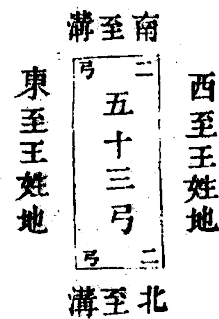 南至溝
西至王姓地
二弓
五十三弓
二弓
東至王姓地
北至溝